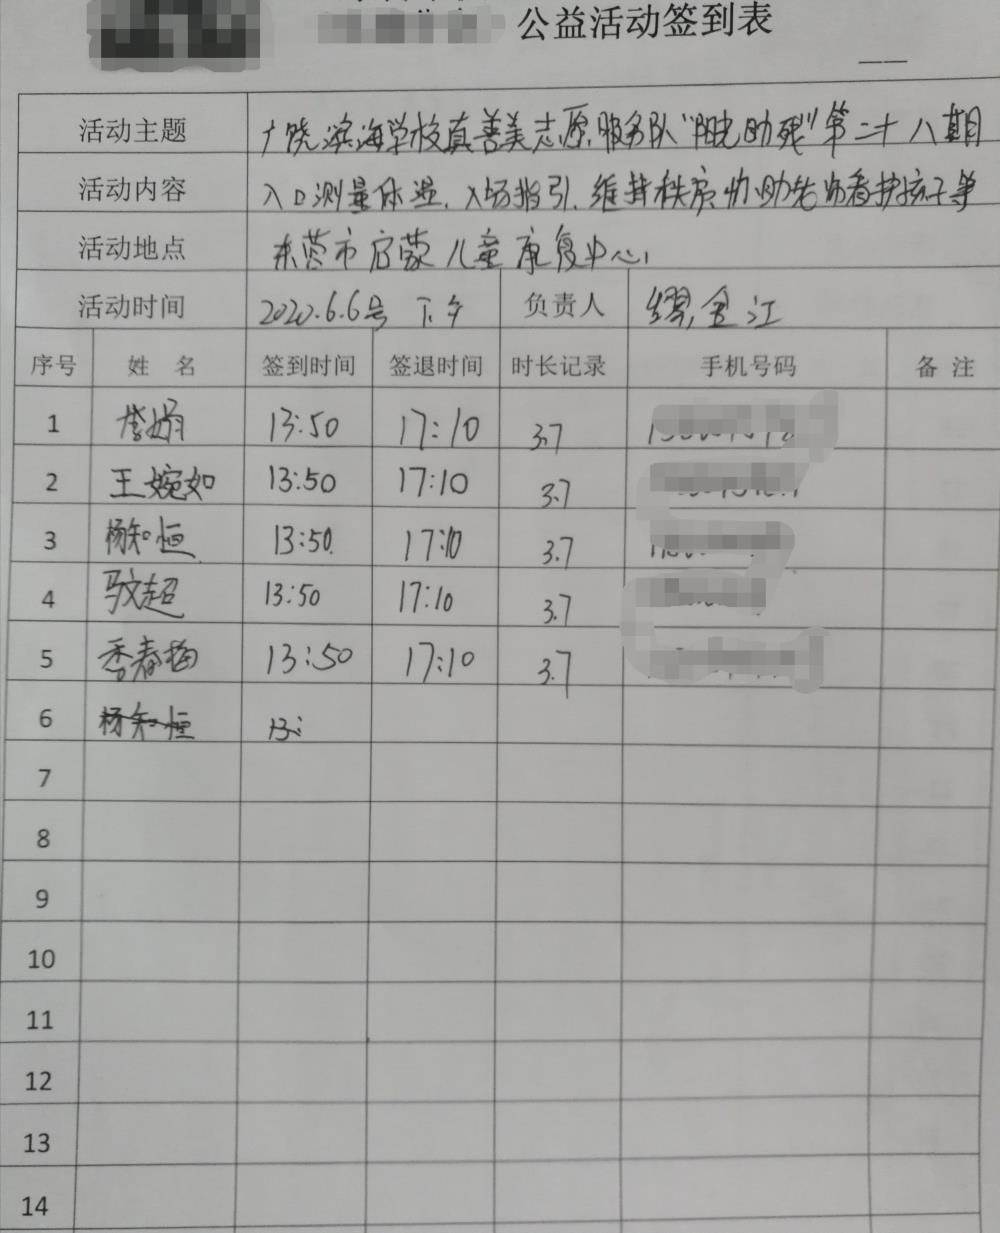 公益活动签到表
活动主题 广饶滨海学校真善美志愿服务队"阳光助残"第二十八期
活动内容 入口测量体温,入场指引,维持秩序协助老师看护孩子等
活动地点 东营市启蒙儿童康复中心
活动时间 2020.6.6号 下午 负责人 缪金江
序号 姓名 签到时间 签退时间 时长记录 手机号码 备注
1 娟 13:50 17:10 3.7
2 王婉如 13:50 17:10 3.7
3 杨知恒 13:50 17:10 3.7
4 马文超 13:50 17:10 3.7
5 春梅 13:50 17:10 3.7
6 杨知恒 13:
7
8
9
10
11
12
13
14